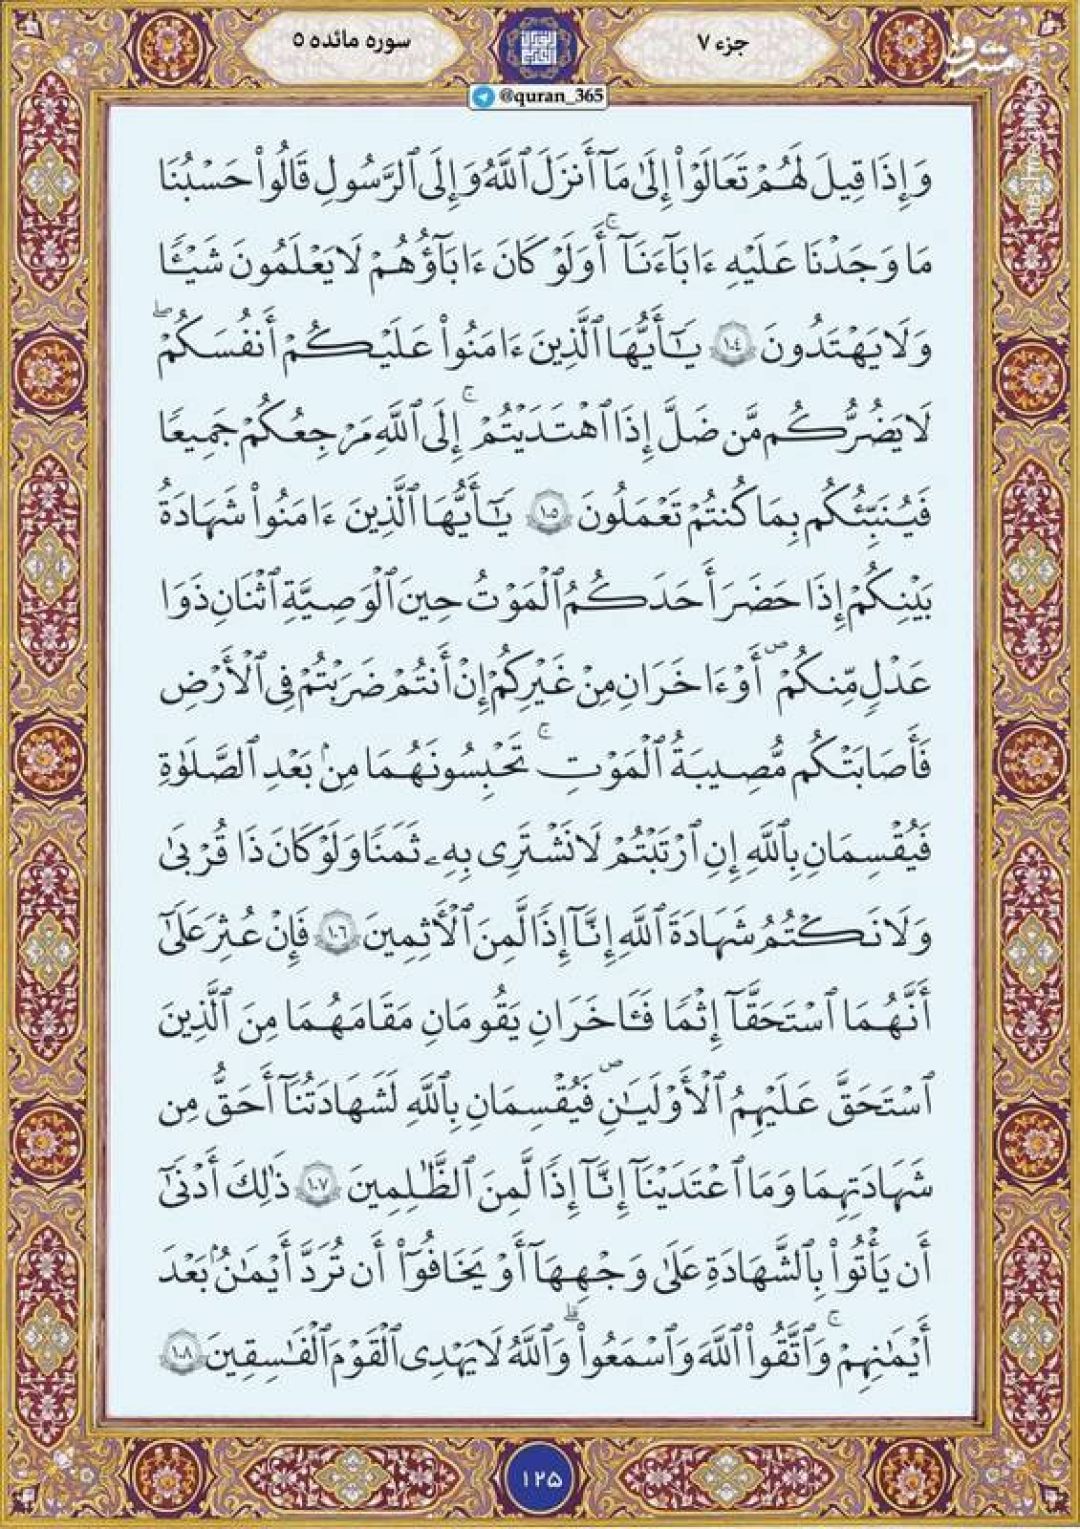 جزء ٧
سوره مائده ٥
مشرق
mashreghnews.ir
@quran_365
وَإِذَا قِيلَ لَهُمْ تَعَالَوْا۟ إِلَىٰ مَآ أَنزَلَ ٱللَّهُ وَإِلَى ٱلرَّسُولِ قَالُوا۟ حَسْبُنَا
مَا وَجَدْنَا عَلَيْهِ ءَابَآءَنَآ ۚ أَوَلَوْ كَانَ ءَابَآؤُهُمْ لَا يَعْلَمُونَ شَيْـًٔا
وَلَا يَهْتَدُونَ ١٠٤ يَـٰٓأَيُّهَا ٱلَّذِينَ ءَامَنُوا۟ عَلَيْكُمْ أَنفُسَكُمْ ۖ
لَا يَضُرُّكُم مَّن ضَلَّ إِذَا ٱهْتَدَيْتُمْ ۚ إِلَى ٱللَّهِ مَرْجِعُكُمْ جَمِيعًا
فَيُنَبِّئُكُم بِمَا كُنتُمْ تَعْمَلُونَ ١٠٥ يَـٰٓأَيُّهَا ٱلَّذِينَ ءَامَنُوا۟ شَهَادَةُ
بَيْنِكُمْ إِذَا حَضَرَ أَحَدَكُمُ ٱلْمَوْتُ حِينَ ٱلْوَصِيَّةِ ٱثْنَانِ ذَوَا
عَدْلٍ مِّنكُمْ أَوْ ءَاخَرَانِ مِنْ غَيْرِكُمْ إِنْ أَنتُمْ ضَرَبْتُمْ فِى ٱلْأَرْضِ
فَأَصَـٰبَتْكُم مُّصِيبَةُ ٱلْمَوْتِ ۚ تَحْبِسُونَهُمَا مِنۢ بَعْدِ ٱلصَّلَوٰةِ
فَيُقْسِمَانِ بِٱللَّهِ إِنِ ٱرْتَبْتُمْ لَا نَشْتَرِى بِهِۦ ثَمَنًا وَلَوْ كَانَ ذَا قُرْبَىٰ
وَلَا نَكْتُمُ شَهَادَةَ ٱللَّهِ إِنَّآ إِذًا لَّمِنَ ٱلْـَٔاثِمِينَ ١٠٦ فَإِنْ عُثِرَ عَلَىٰٓ
أَنَّهُمَا ٱسْتَحَقَّآ إِثْمًا فَـَٔاخَرَانِ يَقُومَانِ مَقَامَهُمَا مِنَ ٱلَّذِينَ
ٱسْتَحَقَّ عَلَيْهِمُ ٱلْأَوْلَيَـٰنِ فَيُقْسِمَانِ بِٱللَّهِ لَشَهَادَتُنَآ أَحَقُّ مِن
شَهَادَتِهِمَا وَمَا ٱعْتَدَيْنَآ إِنَّآ إِذًا لَّمِنَ ٱلظَّـٰلِمِينَ ١٠٧ ذَٰلِكَ أَدْنَىٰٓ
أَن يَأْتُوا۟ بِٱلشَّهَادَةِ عَلَىٰ وَجْهِهَآ أَوْ يَخَافُوٓا۟ أَن تُرَدَّ أَيْمَـٰنٌۢ بَعْدَ
أَيْمَـٰنِهِمْ ۗ وَٱتَّقُوا۟ ٱللَّهَ وَٱسْمَعُوا۟ ۗ وَٱللَّهُ لَا يَهْدِى ٱلْقَوْمَ ٱلْفَـٰسِقِينَ ١٠٨
١٢٥